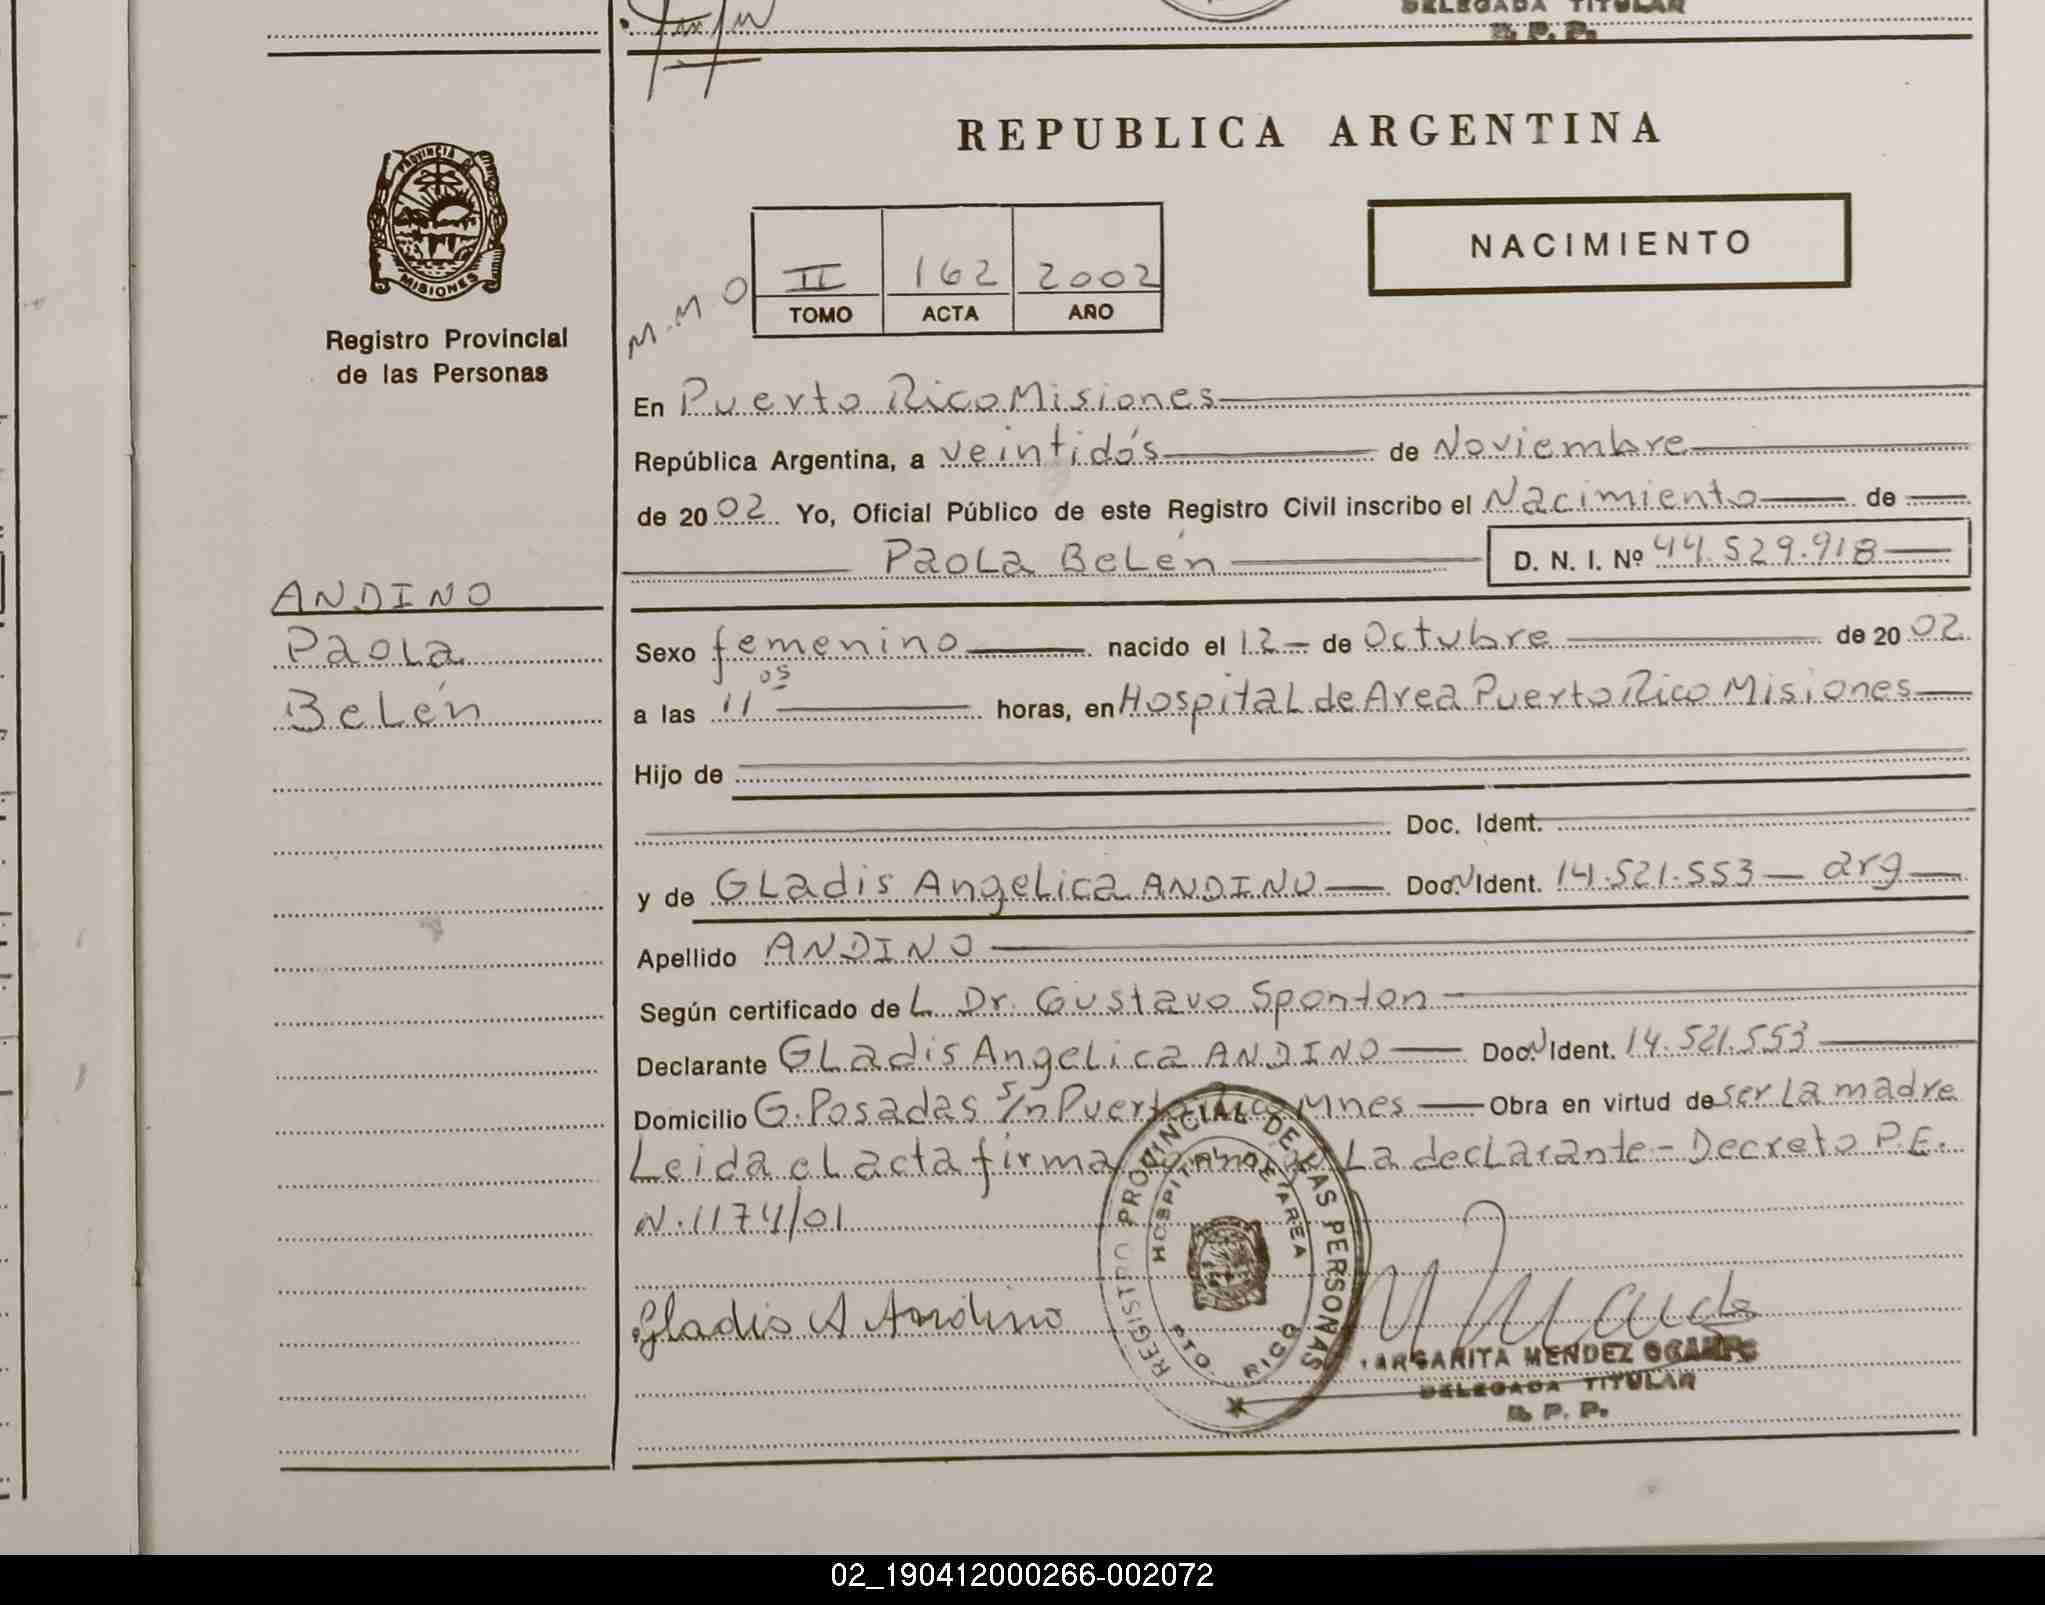 DELEGADA TITULAR
R. P. P.
PROVINCIA DE
MISIONES
Registro Provincial
de las Personas
REPUBLICA ARGENTINA
NACIMIENTO
M.M.O
II 162 2002
TOMO ACTA AÑO
En Puerto Rico Misiones
República Argentina, a veintidós de Noviembre
de 2002 Yo, Oficial Público de este Registro Civil inscribo el Nacimiento de
Paola Belén D. N. I. Nº 44.529.918
ANDINO
Paola
Belén
Sexo femenino nacido el 12 de Octubre de 2002
a las 11 05 horas, en Hospital de Area Puerto Rico Misiones
Hijo de
Doc. Ident.
y de Gladis Angelica ANDINO Doc. Ident. 14.521.553 — arg
Apellido ANDINO
Según certificado de L Dr. Gustavo Sponton
Declarante Gladis Angelica ANDINO Doc. Ident. 14.521.553
Domicilio G. Posadas s/n Puerto Rico Mnes Obra en virtud de ser La madre
Leida el acta firma La declarante - Decreto P.E.
N. 1174/01
Gladis A Andino
REGISTRO PROVINCIAL DE LAS PERSONAS
HOSPITAL DE AREA
PTO. RICO
MARGARITA MENDEZ OCAMPO
DELEGADA TITULAR
R. P. P.
02_190412000266-002072